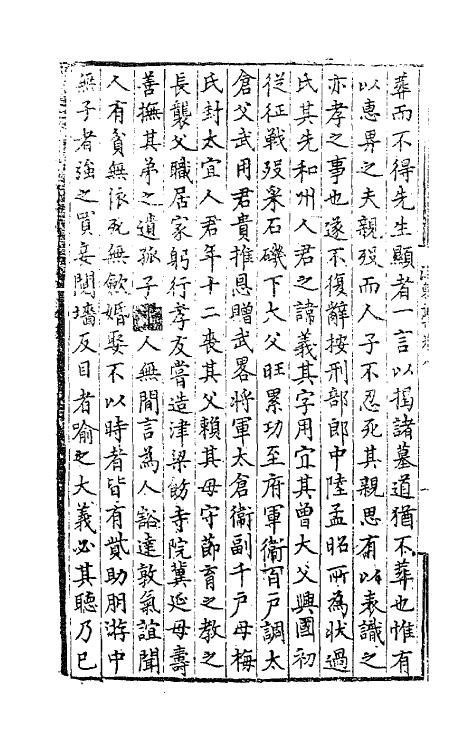 葬而不得先生顯者一言以揭諸墓道猶不葬也惟有
以惠畀之夫親歿而人子不忍死其親思有以表識之
亦孝之事也遂不復辭按刑部郎中陸孟昭所為狀過
氏其先和州人君之諱義其字用宜其曾大父興國初
從征戰歿采石磯下大父旺累功至府軍衛百戶調太
倉父武用君貴推恩贈武畧將軍太倉衛副千戶母梅
氏封太宜人君年十二喪其父賴其母守節育之教之
長襲父職居家躬行孝友嘗造津梁飭寺院冀延母壽
善撫其弟之遺孤子人無間言為人豁達敦氣誼聞
人有貧無依死無斂婚娶不以時者皆有貲助朋游中
無子者強之買妾鬩墻反目者喻之大義必其聽乃已